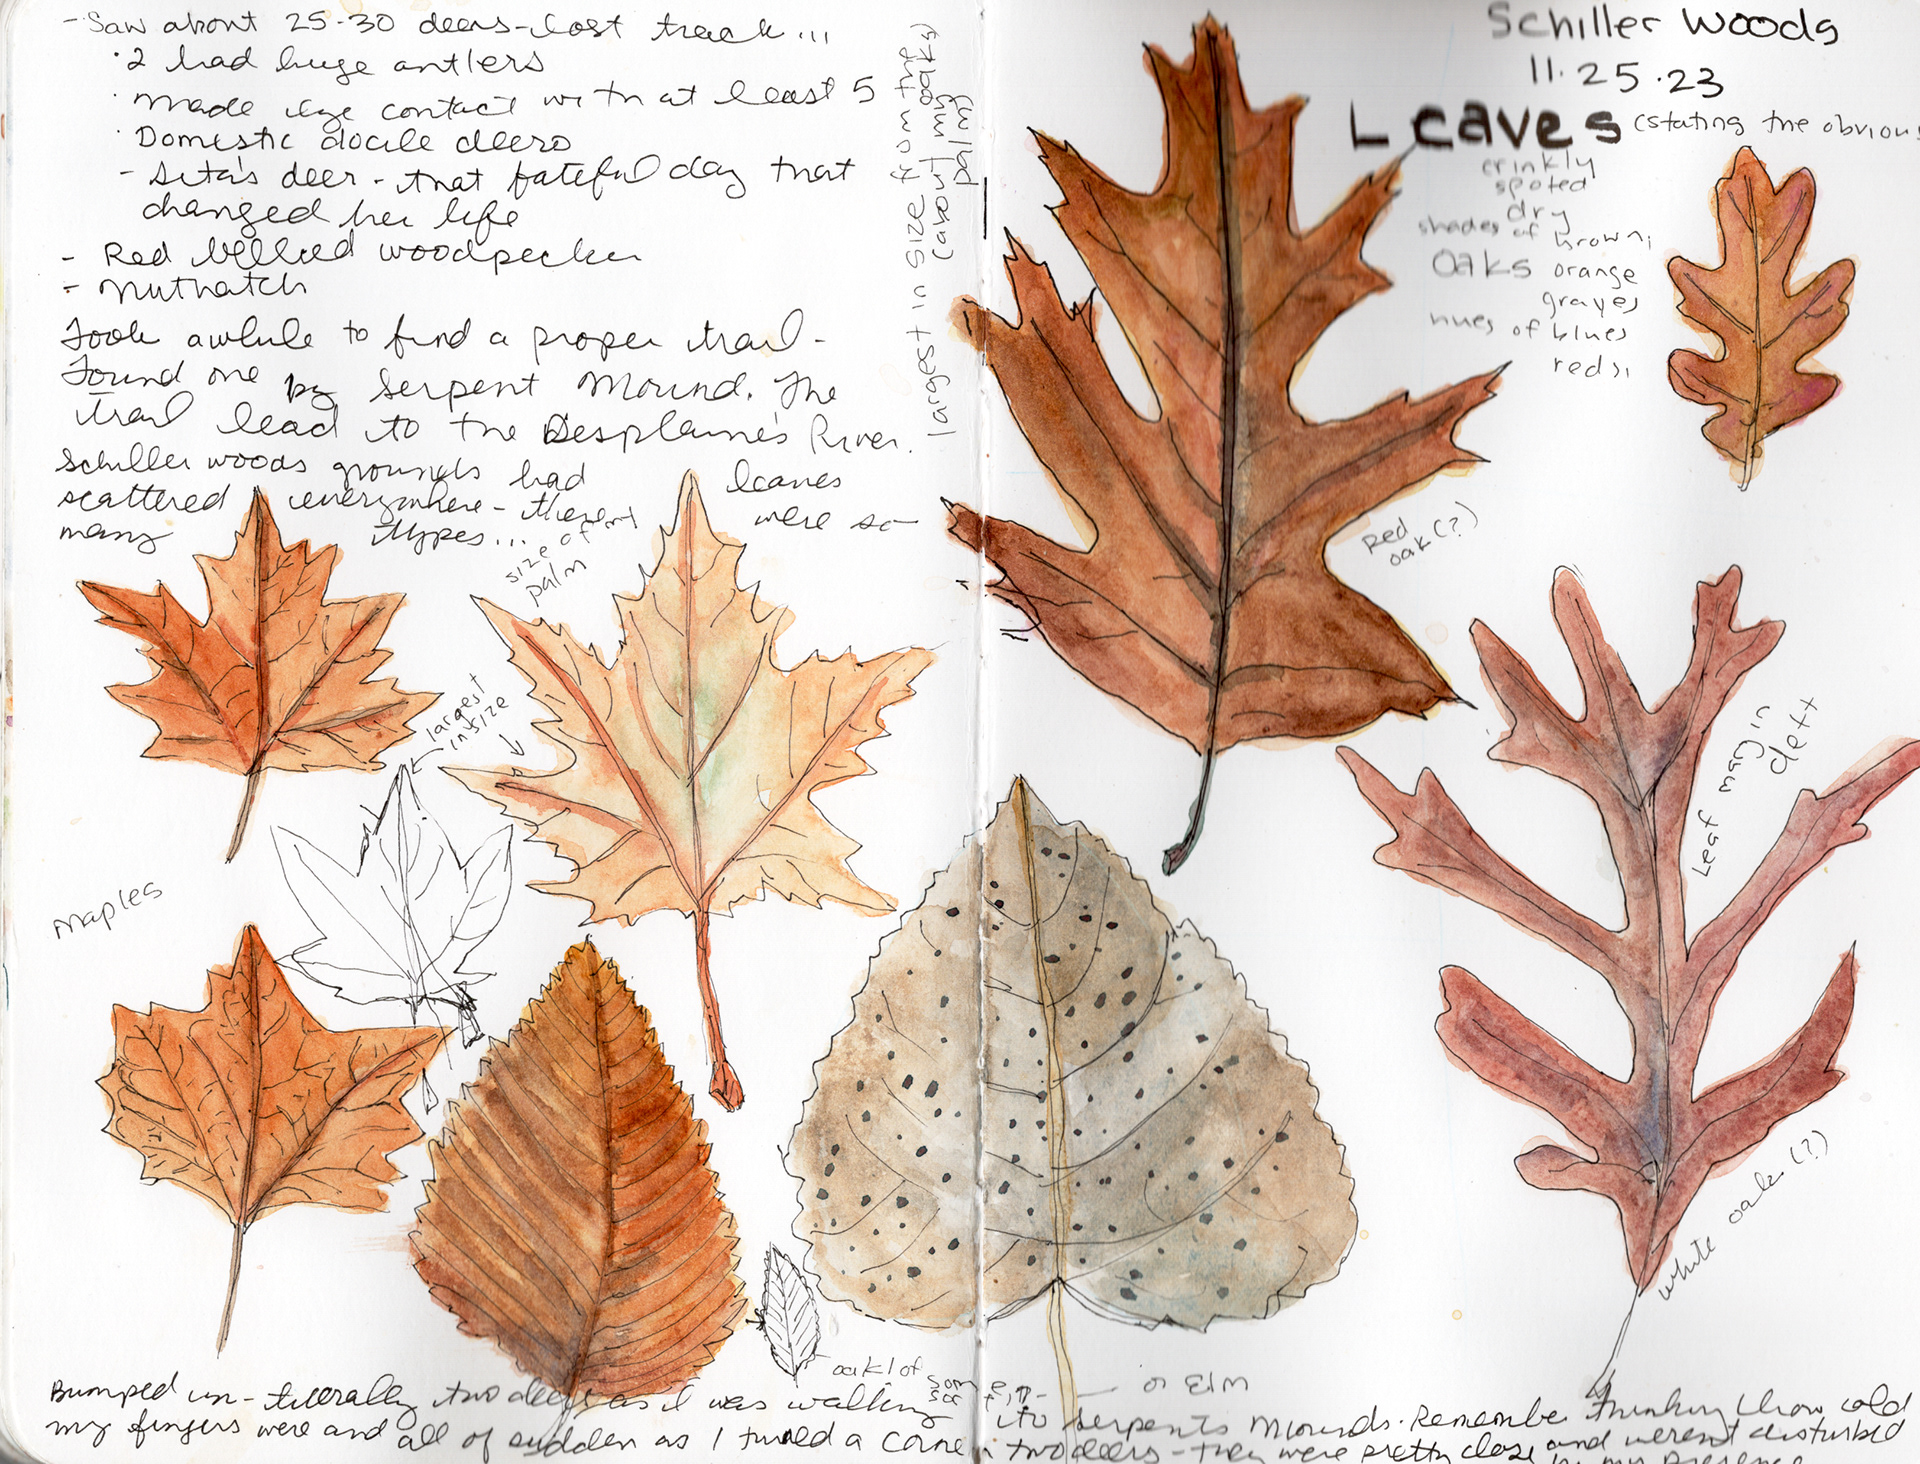 - Saw about 25-30 deers - lost track...
· 2 had huge antlers
· Made eye contact with at least 5
· Domestic docile deers
- Sita's deer - that fateful day that
changed her life
- Red bellied woodpecker
- Nuthatch
Took awhile to find a proper trail -
Found one by Serpent Mound. The
trail lead to the Desplaine's River.
Schiller woods grounds had leaves
scattered everywhere - there were so
many types...
size of my
palm
largest
in size
Maples
largest in size from the
(about my oaks)
palm)
Schiller Woods
11.25.23
Leaves (stating the obvious
crinkly
spoted
dry
shades of brown,
Oaks orange
grayes
hues of blues
reds,
Red
oak (?)
Leaf margin
deff
white oak (?)
oak | of
some
or Elm
Bumped in - literally two deers as I was walking to serpents Mounds. Remember thinking how cold
my fingers were and all of sudden as I turned a corner two deers - they were pretty close and weren't disturbed
by my presence